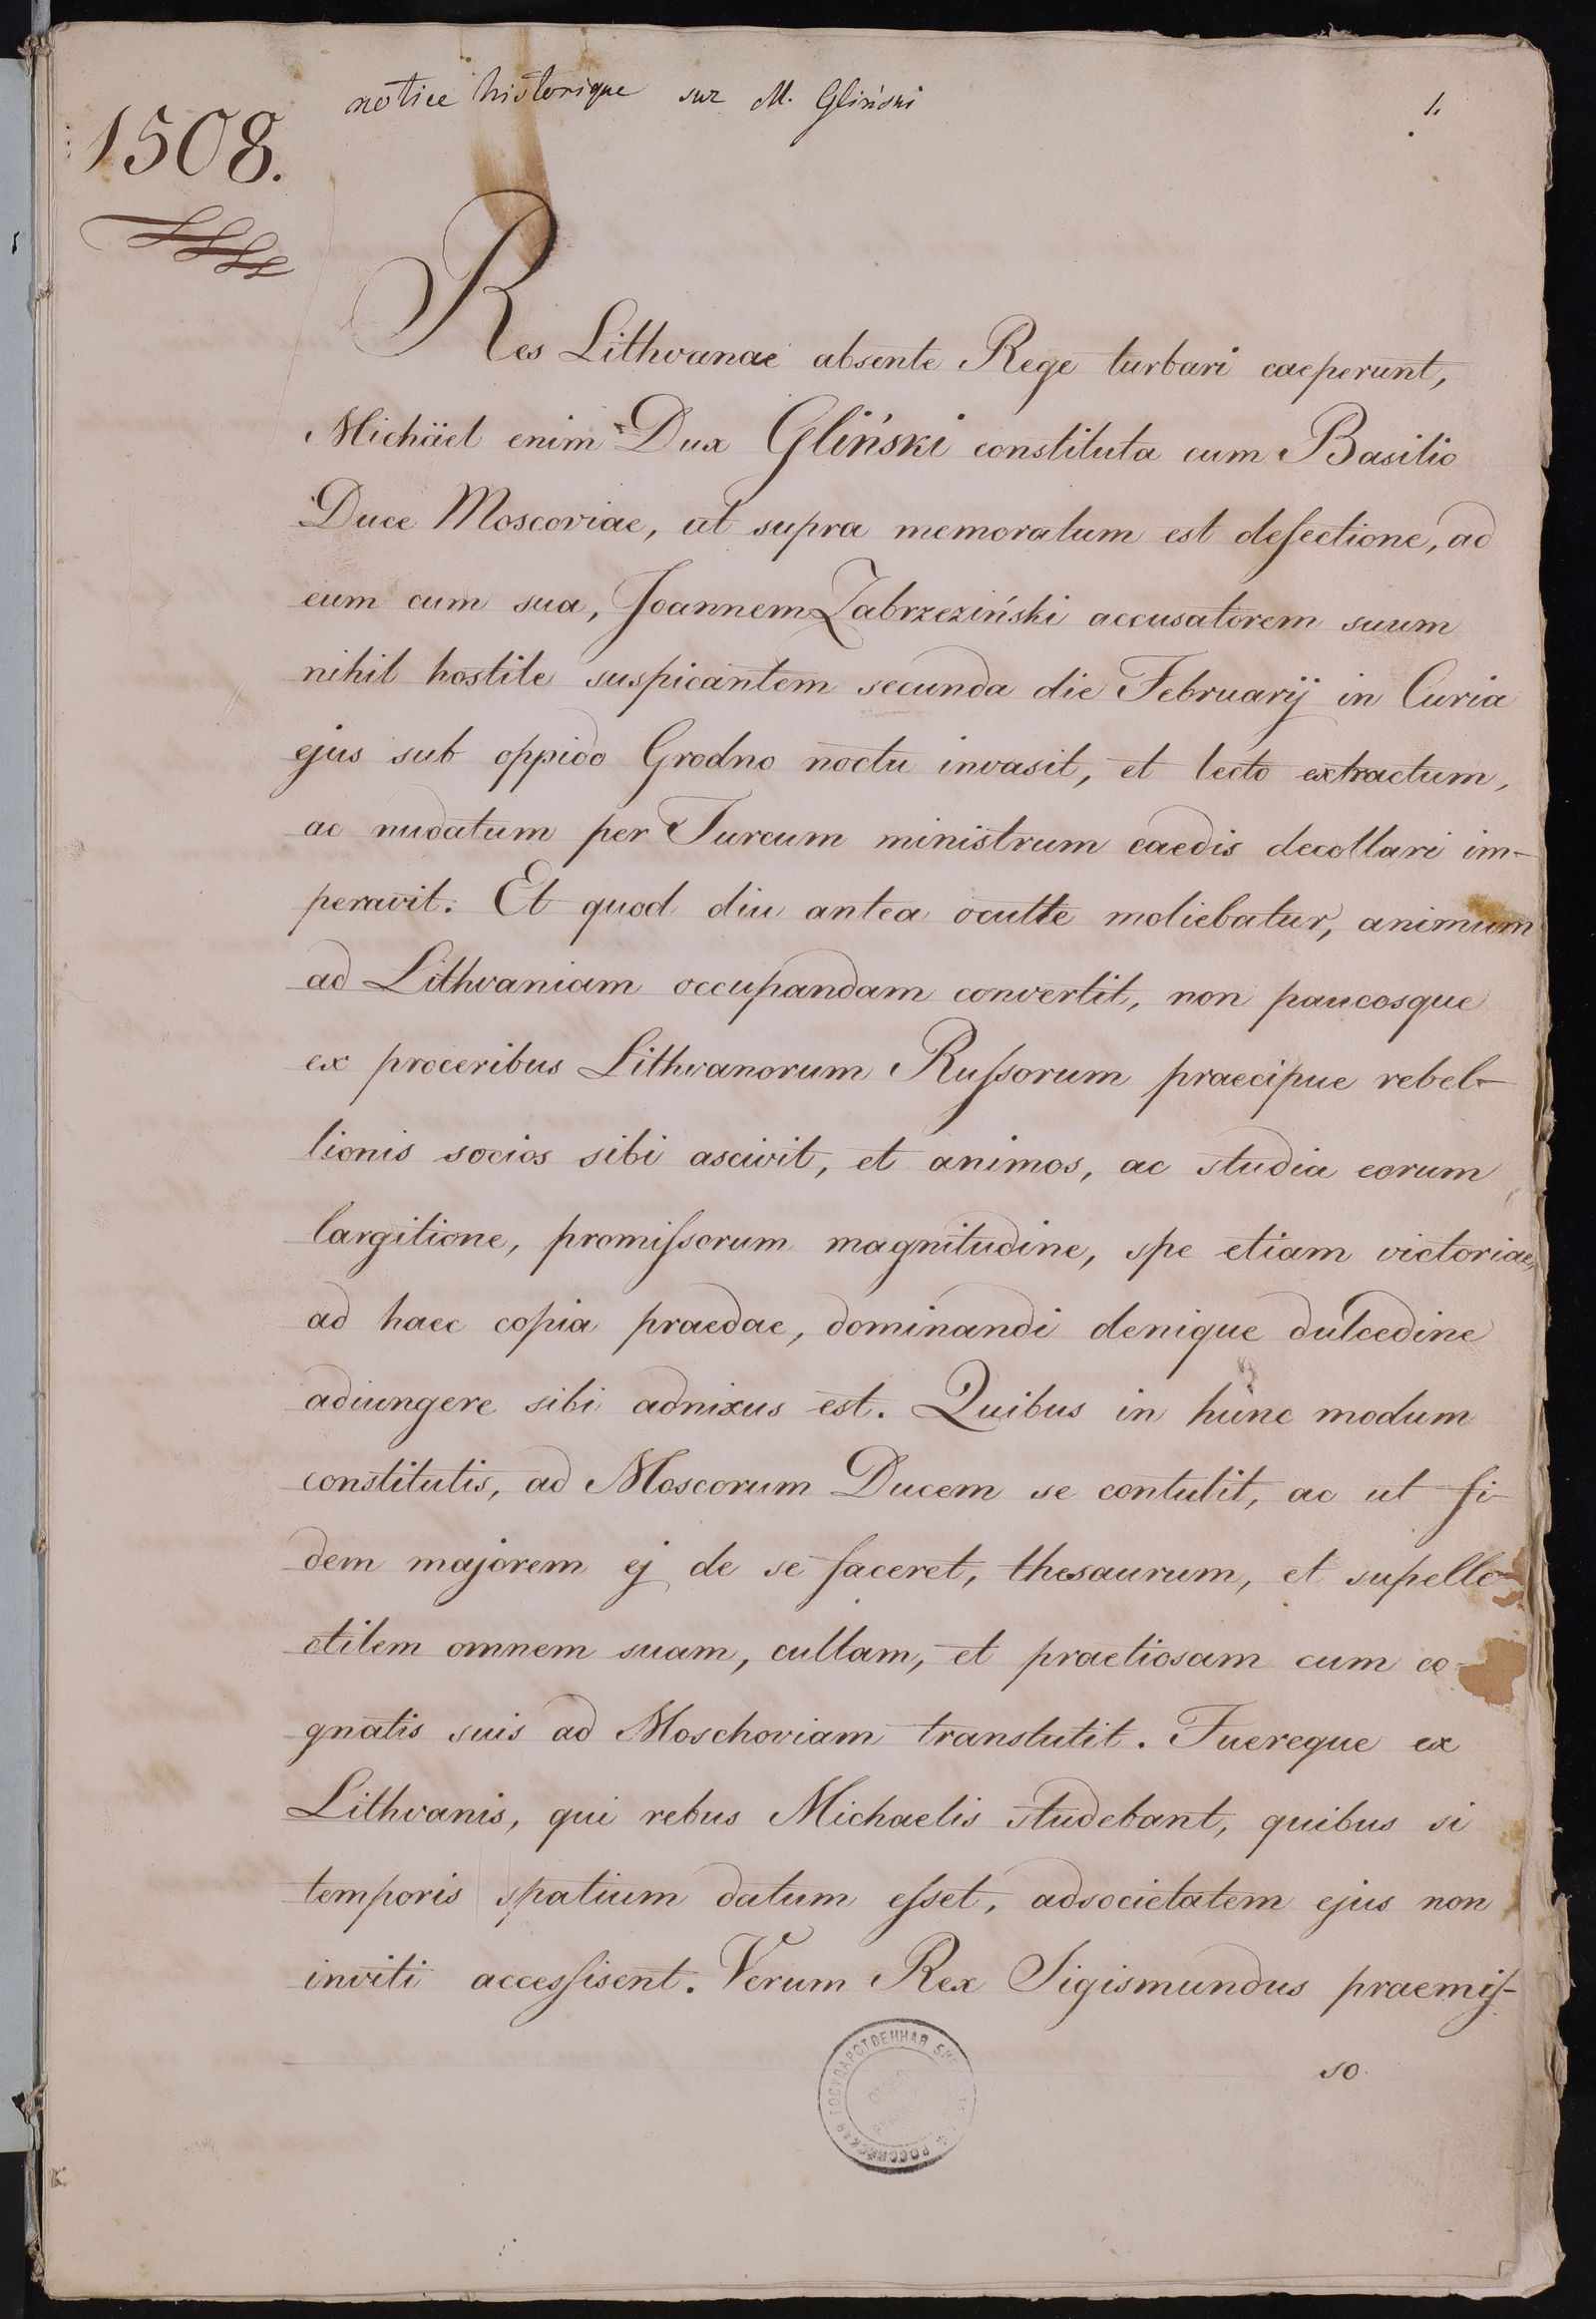 notice historique sur M. Gliński
1.
1508.
Res Lithvanae absente Rege turbari caeperunt,
Michäel enim Dux Gliński constituta cum Basilio
Duce Moscoviae, ut supra memoratum est defectione, ad
eum cum sua, Joannem Zabrzeziński accusatorem suum
nihil hostile suspicantem secunda die Februarij in Curia
ejus sub oppido Grodno noctu invasit, et lecto extractum,
ac nudatum per Turcum ministrum caedis decollari im-
peravit. Et quod diu antea oculte moliebatur, animum
ad Lithvaniam occupandam convertit, non paucosque
ex proceribus Lithvanorum Rufsorum praecipue rebel-
lionis socios sibi ascivit, et animos, ac studia eorum
largitione, promifsorum magnitudine, spe etiam victoriae,
ad haec copia praedae, dominandi denique dulcedine
adiungere sibi adnixus est. Quibus in hunc modum
constitutis, ad Moscorum Ducem se contulit, ac ut fi-
dem majorem ej de se faceret, thesaurum, et supelle-
ctilem omnem suam, cultam, et praetiosam cum co-
gnatis suis ad Moschoviam translutit. Fuereque ex
Lithvanis, qui rebus Michaelis studebant, quibus si
temporis spatium datum efset, adsocietatem ejus non
inviti accesfisent. Verum Rex Sigismundus praemif-
so
РОССИЙСКАЯ ГОСУДАРСТВЕННАЯ